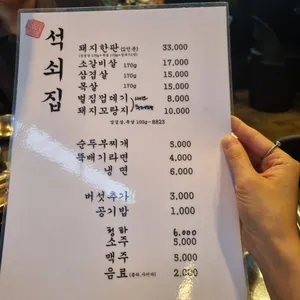 석쇠집
돼지한판(2인분) 33,000
소갈비살 170g 17,000
삼겹살 170g 15,000
목살 170g 15,000
벌집껍데기 8,000
돼지꼬랑지 10,000
순두부찌개 5,000
뚝배기라면 4,000
냉면 6,000
버섯추가 3,000
공기밥 1,000
청하 6.000
소주 5,000
맥주 5,000
음료 2,000